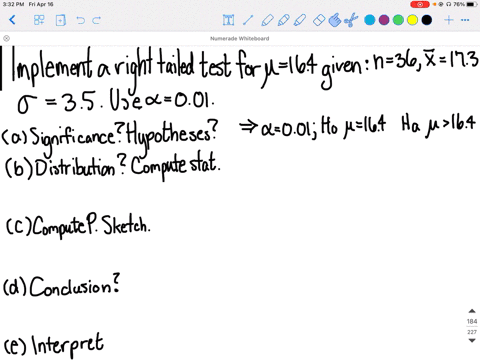 3:32 PM Fri Apr 16
76%
Numerade Whiteboard
Implement a right tailed test for μ=16.4 given: n=36, x̄=17.3
σ = 3.5. Use α=0.01.
(a) Significance? Hypotheses? ⇒ α=0.01; Ho μ=16.4 Ha μ>16.4
(b) Distribution? Compute stat.
(c) Compute P. Sketch.
(d) Conclusion?
(e) Interpret
184
227